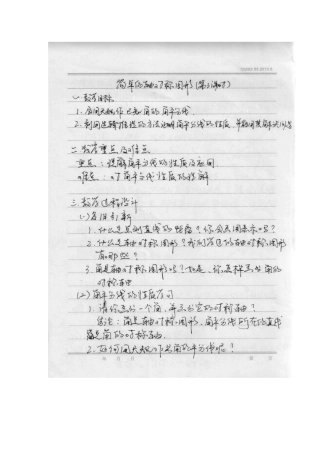 简单的轴对称图形(第2课时)
一、教学目标
1、会用尺规作已知角的角平分线
2、利用逻辑推理的方法证明角平分线的性质,并能用其解决问题
二、教学重点及难点
重点:理解角平分线的性质及应用
难点:对角平分线性质的理解
三、教学过程设计
(一)复习引新
1、什么是点到直线的距离?你会用图表示吗?
2、什么是轴对称图形?我们学过的轴对称图形有哪些?
3、角是轴对称图形吗?如是,你怎样画出角的对称轴
(二)角平分线的性质学习
1、请你画一个角,并画出它的对称轴?
结论:角是轴对称图形,角平分线所在的直线
角是角的对称轴。
2、如何用尺规作出角的平分线呢?